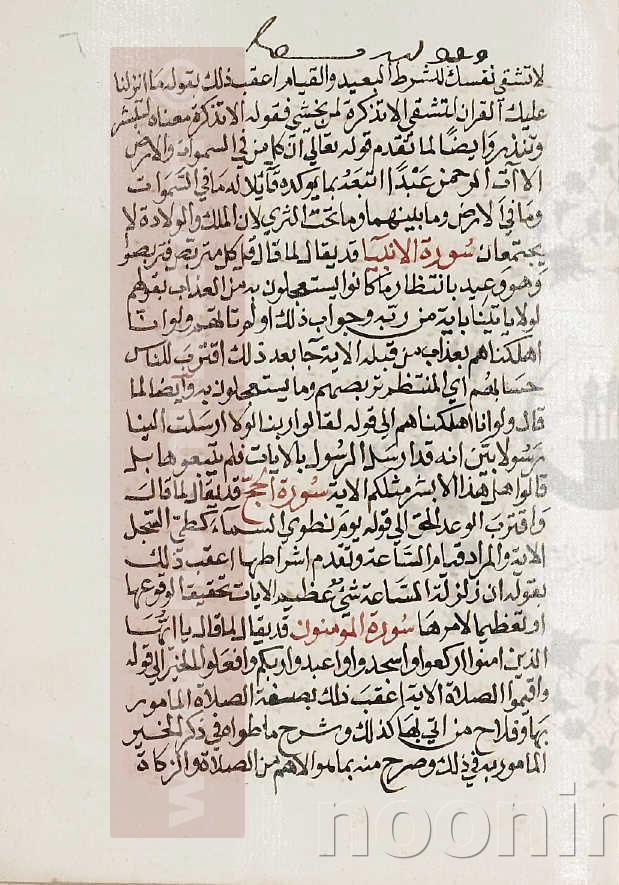 لا تشقى نفسك للشرط البعيد والقيام اعقب ذلك بقوله ما انزلنا
عليك القران لتشقى الا تذكرة لمن يخشى فقوله الا تذكرة معناه لتبشر
وتنذر وايضا لما تقدم قوله تعالى ان كل من في السموات والارض
الا ات الرحمن عبدا اتبعه بما يوكده قايلا له ما في السموات
وما في الارض وما بينهما وما تحت الثري لان الملك والولادة لا
يجتمعان سورة الانبيا قد يقال لما قال قل كل متربص فتربصوا
وهو وعيد بانتظار ما كانوا يستعجلون به من العذاب بقولهم
لولا ياتينا باية من ربه وجواب ذلك اولم تاتهم ولو انا
اهلكناهم بعذاب من قبله الاية جا بعد ذلك اقترب للناس
حسابهم اي المنتظم تربصهم وما يستعجلون به وايضا لما
قال ولو انا اهلكناهم الى قوله لقالوا ربنا لولا ارسلت الينا
رسولا بين انه قد ارسل الرسول بالايات فلم يتبعوها بل
قالوا هل هذا الا بشر مثلكم الاية سورة الحج قد يقال لما قال
واقترب الوعد الحق الي قوله يوم نطوي السماء كطي السجل
الاية والمراد قيام الساعة وتقدم اشراطها اعقب ذلك
بقوله ان زلزلة الساعة شئ عظيم الايات تحقيقا لوقوعها
او تعظيما لامرها سورة المومنون قد يقال لما قال يا ايها
الذين امنوا اركعوا واسجدوا واعبدوا ربكم وافعلوا الخير الي قوله
واقيموا الصلاة الاية اعقب ذلك بصفة الصلاة المامور
بها وفلاح من اتي بها كذلك وشرح ما طواه في ذكر الخير
المامور به في ذلك وصرح منه بما هو الاهم من الصلاة والزكاة
noonin